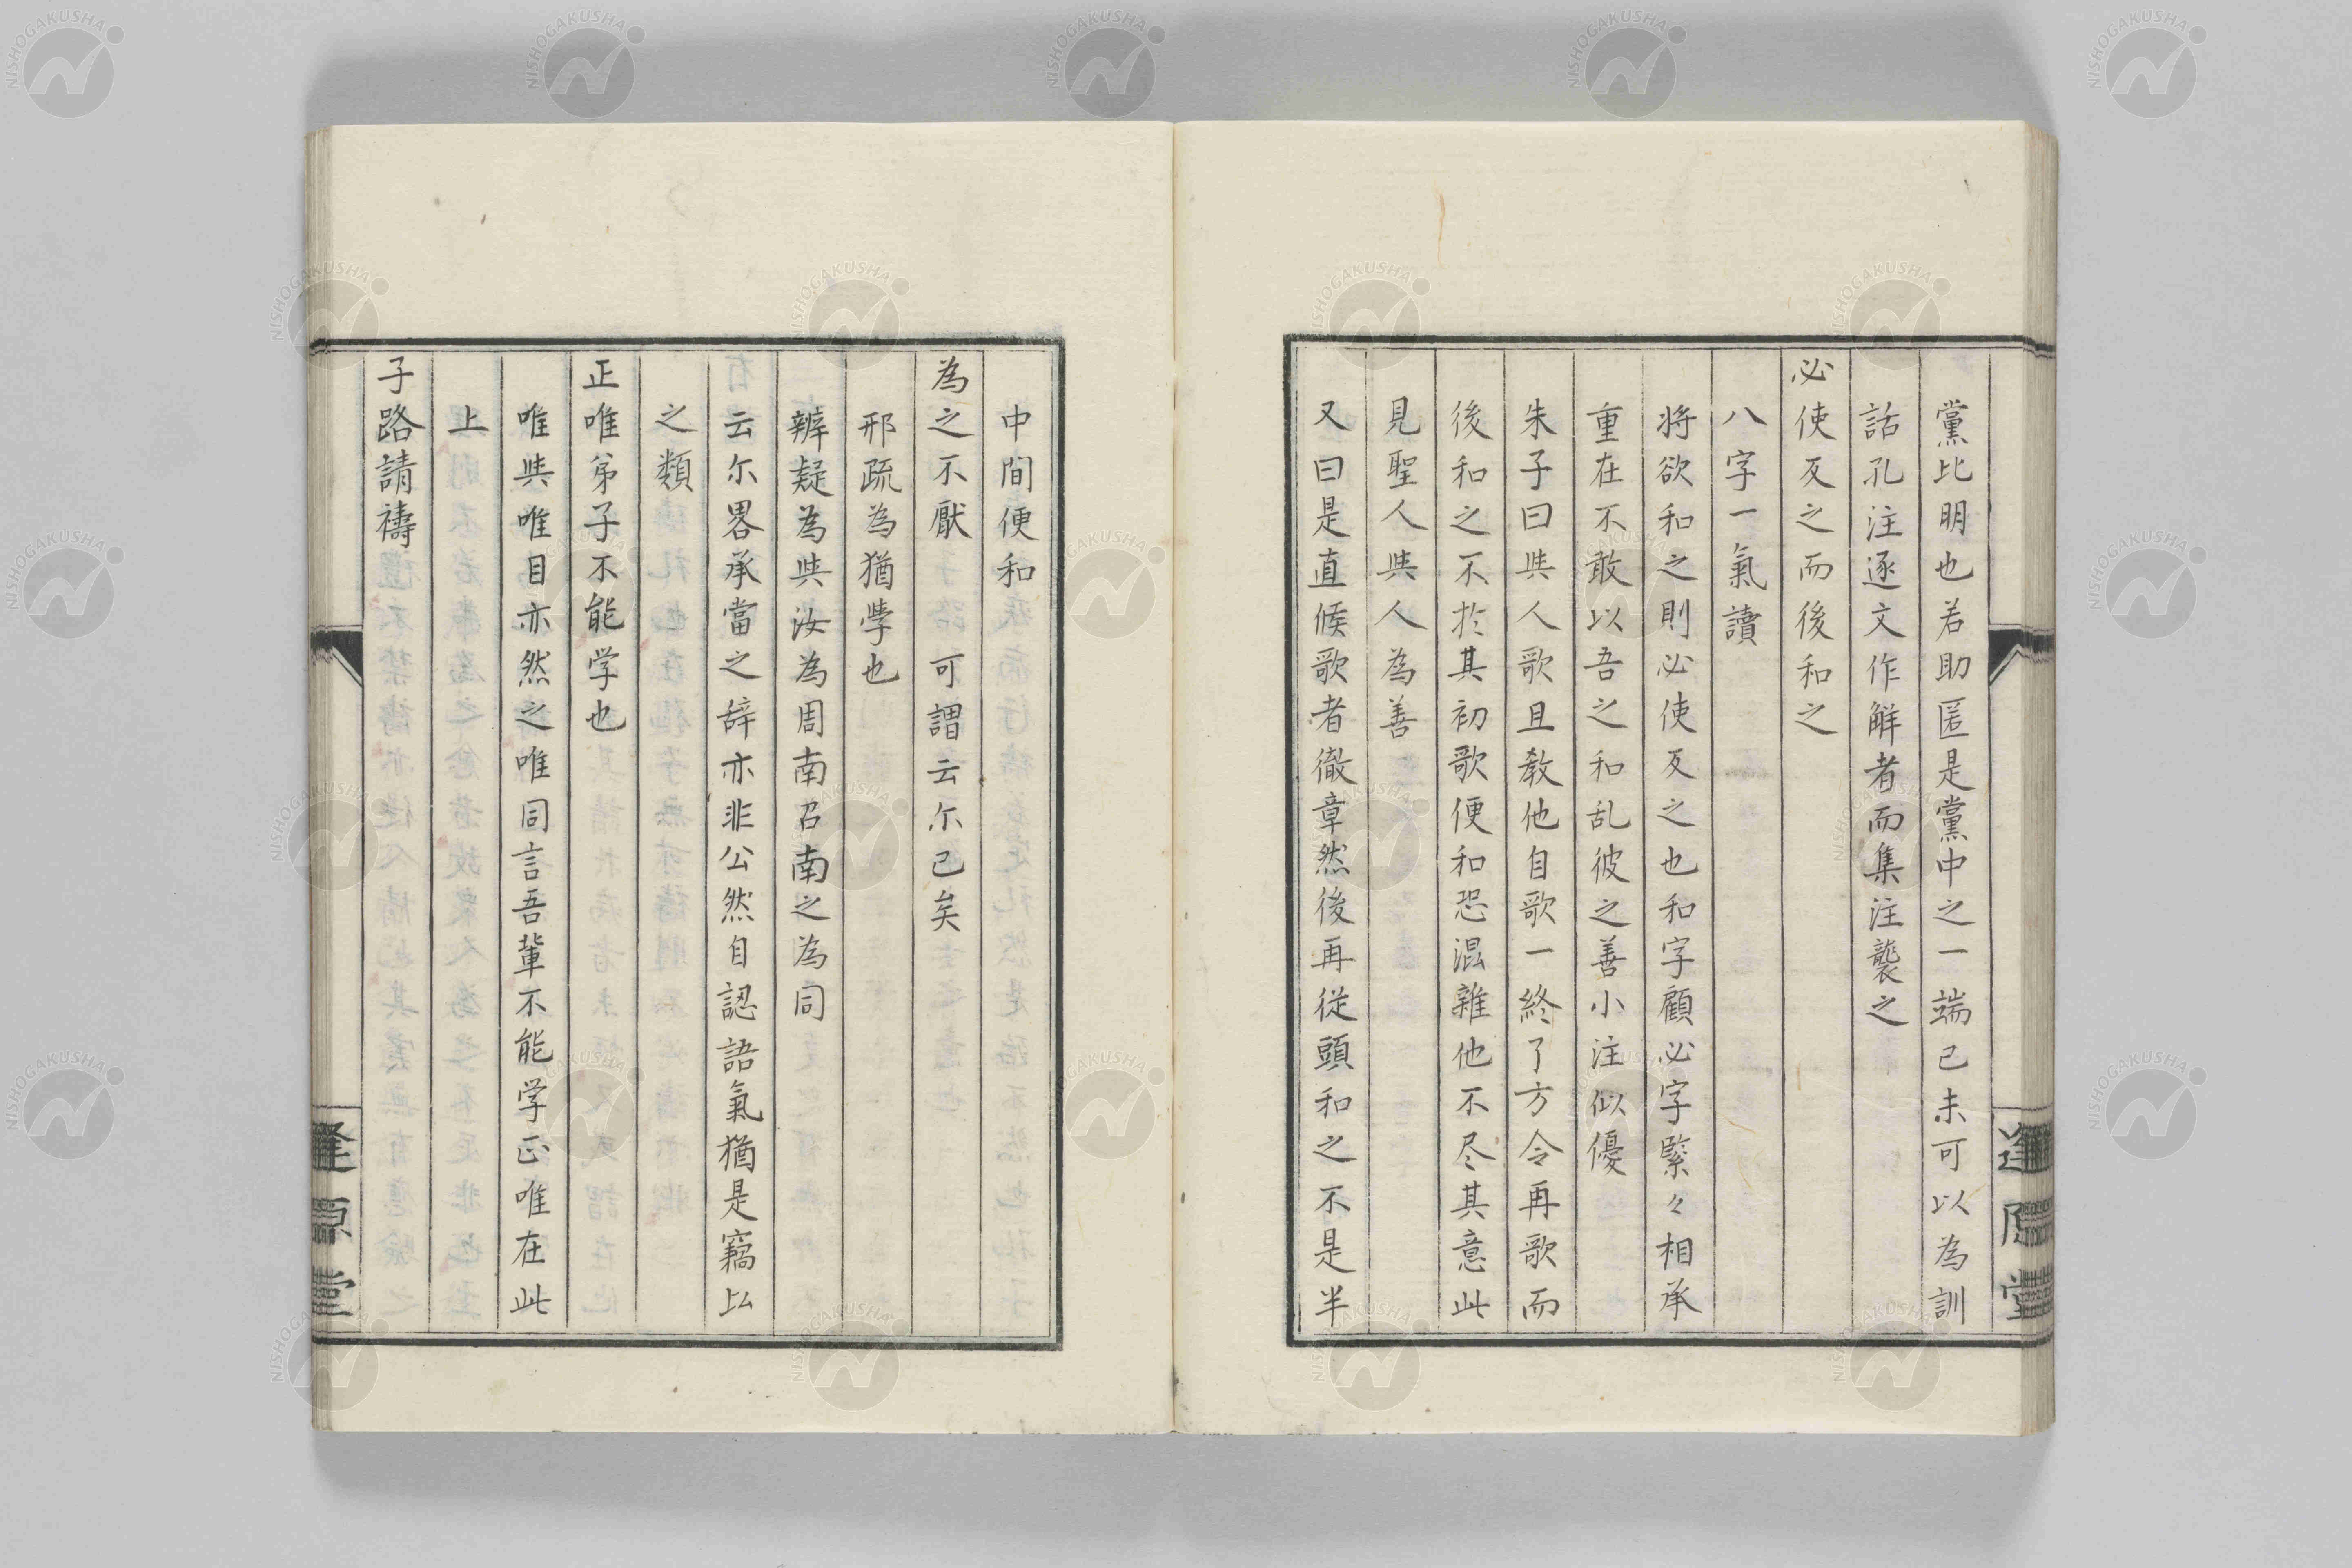 黨比明也若助匿是黨中之一端已未可以為訓
話孔注逐文作解者而集注襲之
必使反之而後和之
八字一氣讀
将欲和之則必使反之也和字顧必字緊々相承
重在不敢以吾之和乱彼之善小注似優
朱子曰與人歌且教他自歌一終了方令再歌而
後和之不於其初歌便和恐混雜他不尽其意此
見聖人與人為善
又曰是直候歌者徹章然後再從頭和之不是半
中間便和
為之不厭 可謂云尓已矣
邢疏為猶學也
辨疑為與汝為周南召南之為同
云尓畧承當之辞亦非公然自認語氣猶是竊比
之類
正唯弟子不能学也
唯與唯目亦然之唯同言吾輩不能学正唯在此
上
子路請禱
逢原堂
逢原堂
NISHOGAKUSHA